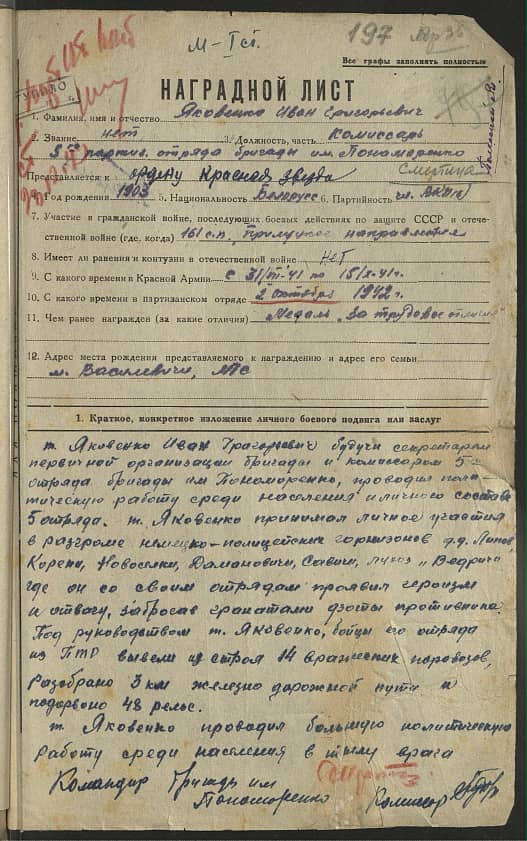 М-I сг.
197
Все графы заполнять полностью
НАГРАДНОЙ ЛИСТ
1. Фамилия, имя и отчество Яковенко Иван Григорьевич
2. Звание нет 3. Должность, часть Комиссар
5го партиз. отряда бригады им. Пономаренко
Представляется к ордену Красная звезда
Год рождения 1903 5. Национальность Белорусс 6. Партийность чл. ВКП(б)
7. Участие в гражданской войне, последующих боевых действиях по защите СССР и отече-
ственной войне (где, когда) 161 с.п., направления
8. Имеет ли ранения и контузии в отечественной войне нет
9. С какого времени в Красной Армии с 41 по 15/X-41г.
10. С какого времени в партизанском отряде 2 октября 1942 г.
11. Чем ранее награжден (за какие отличия) Медаль „За трудовое отличие
12. Адрес места рождения представляемого к награждению и адрес его семьи
м. Василевичи, МТС
1. Краткое, конкретное изложение личного боевого подвига или заслуг
т. Яковенко Иван Григорьевич будучи секретарем
первичной организации бригады и комиссаром 5го
отряда бригады им Пономоренко, проводил поли-
тическую работу среди населения и личного состава
5 отряда. т. Яковенко принимал личное участия
в разгроме немецко-полицейских горнизонов д.д. Липов,
Корени, Новоселки, Домановичи, Савичи, „Ведрич"
где он со своим отрядам проявил героизм
и отвагу, забросав гранатами дзоты противника.
Под руководством т. Яковенко, бойцы его отряда
из ПТР вывели из строя 14 вражеских паровозов,
разобрано 3 км железно дорожной пути и
подорвоно 48 рельс.
т. Яковенко проводил большую политическую
работу среди населения в тылу врага
Командир бригады им
Пономоренко Комиссар